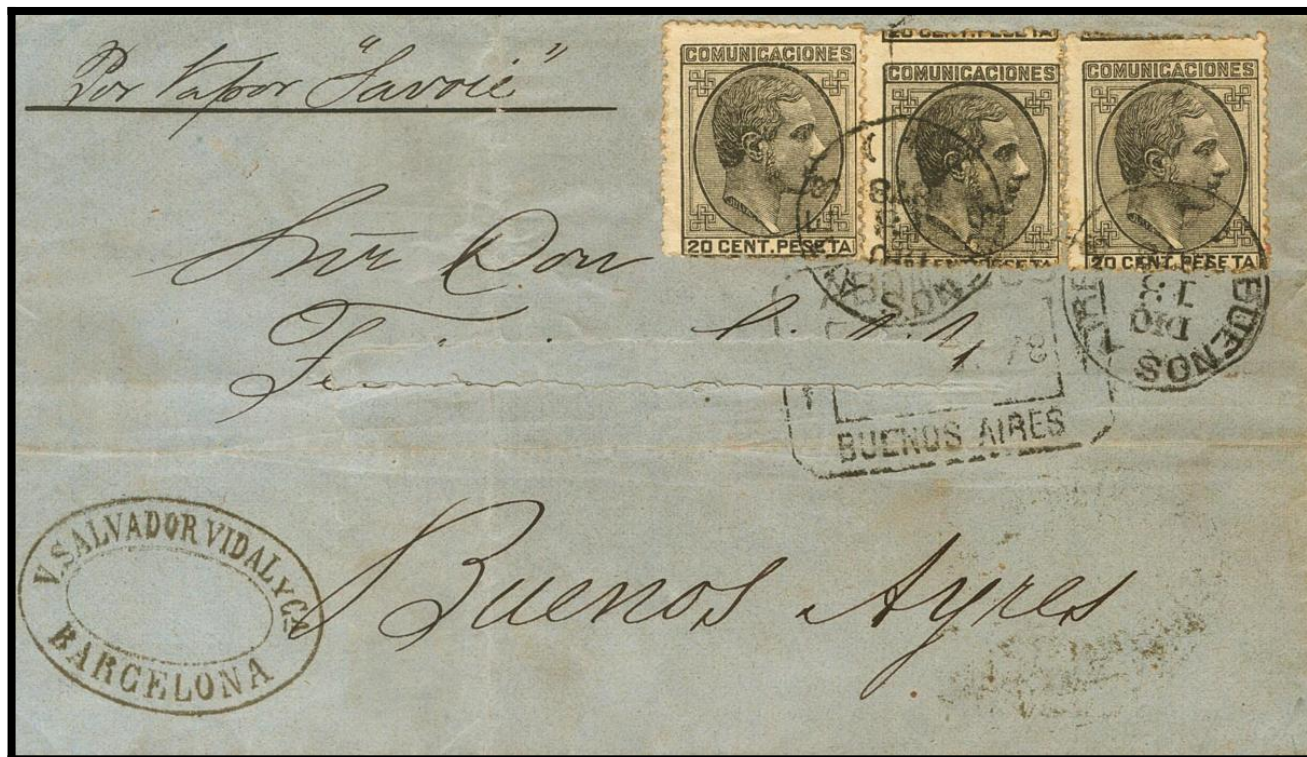 Por Vapor "Savoie"
COMUNICACIONES
20 CENT. PESETA
20 CENT. PESETA
COMUNICACIONES
CENT. PESETA
COMUNICACIONES
20 CENT. PESETA
Don
BUENOS
DIC
BUENOS
78
BUENOS AIRES
V. SALVADOR VIDAL Y Cª
BARCELONA
Buenos Ayres